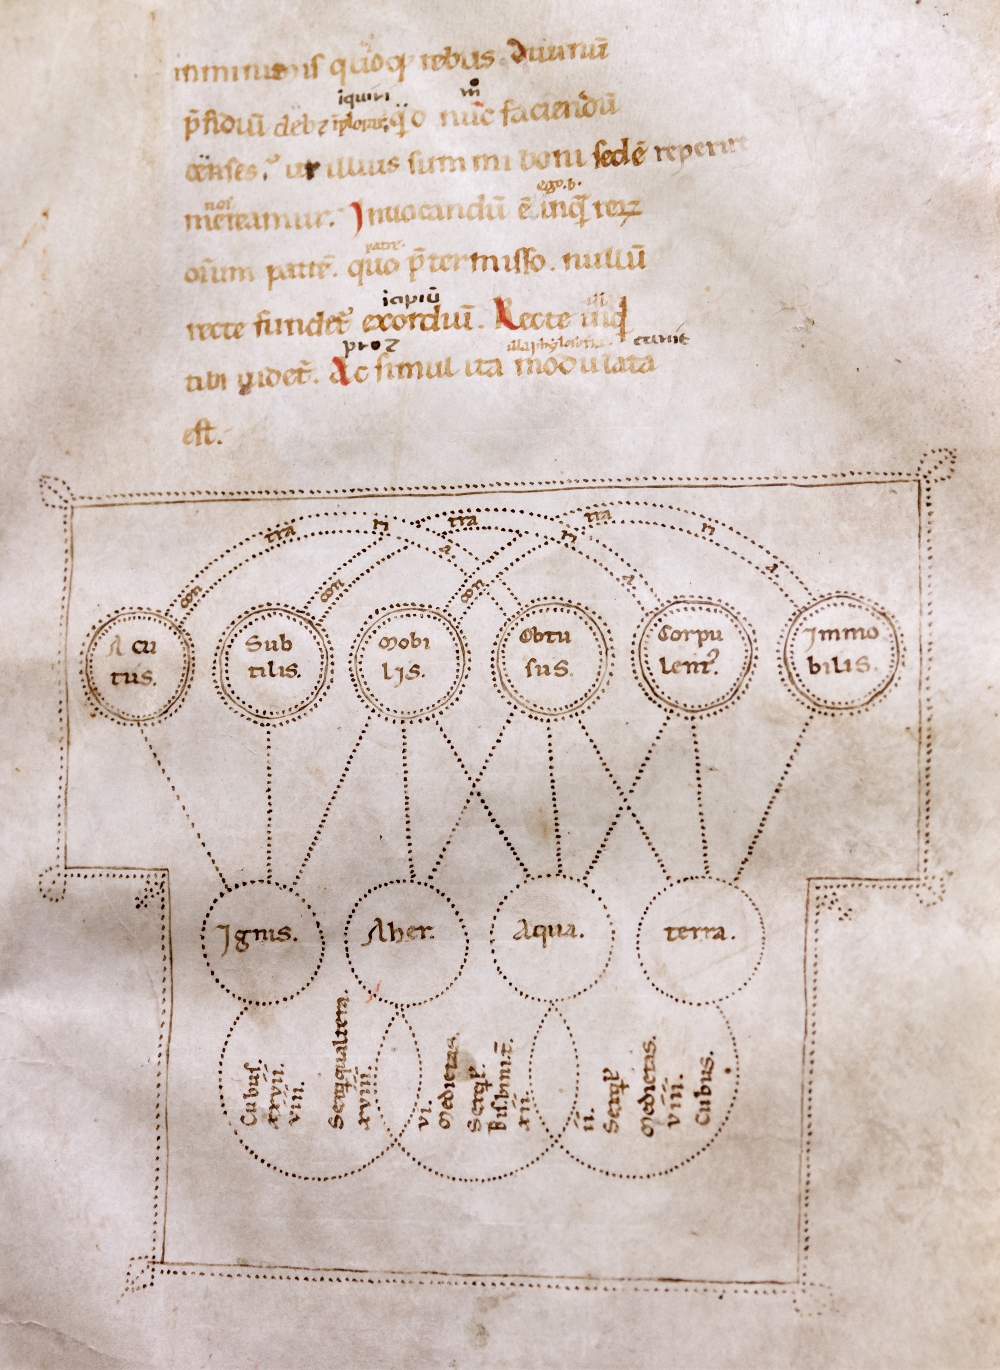 in minimis quoq; rebus. Diuinū
p̄sidiū deb&
iquiri
qͥd nūc faciendū
censes. ut illius summi boni sedē reperire
nos
mereamur. Inuocandū ē inq̄
ego.b.
oīum patrē. quo p̄termisso. nullū
patre.
recte fundet̄ exordiū. Recte inq̄
icipiū
tibi uidet̄. Ac simul ita modulata
pro
est.
con tra ri a
con tra ri a
con tra ri a
Acu
tus.
Sub
tilis.
Mobi
lis.
Obtu
sus.
Corpu
lent᾿.
Immo
bilis.
Ignis.
Aher.
Aqua.
terra.
Cubus.
xxvii.
viii.
Sesq̄qualtera.
xviii.
vi.
Medietas.
Sesq̄
xii.
ii.
Sesq̄
Medietas.
viii.
Cubus.